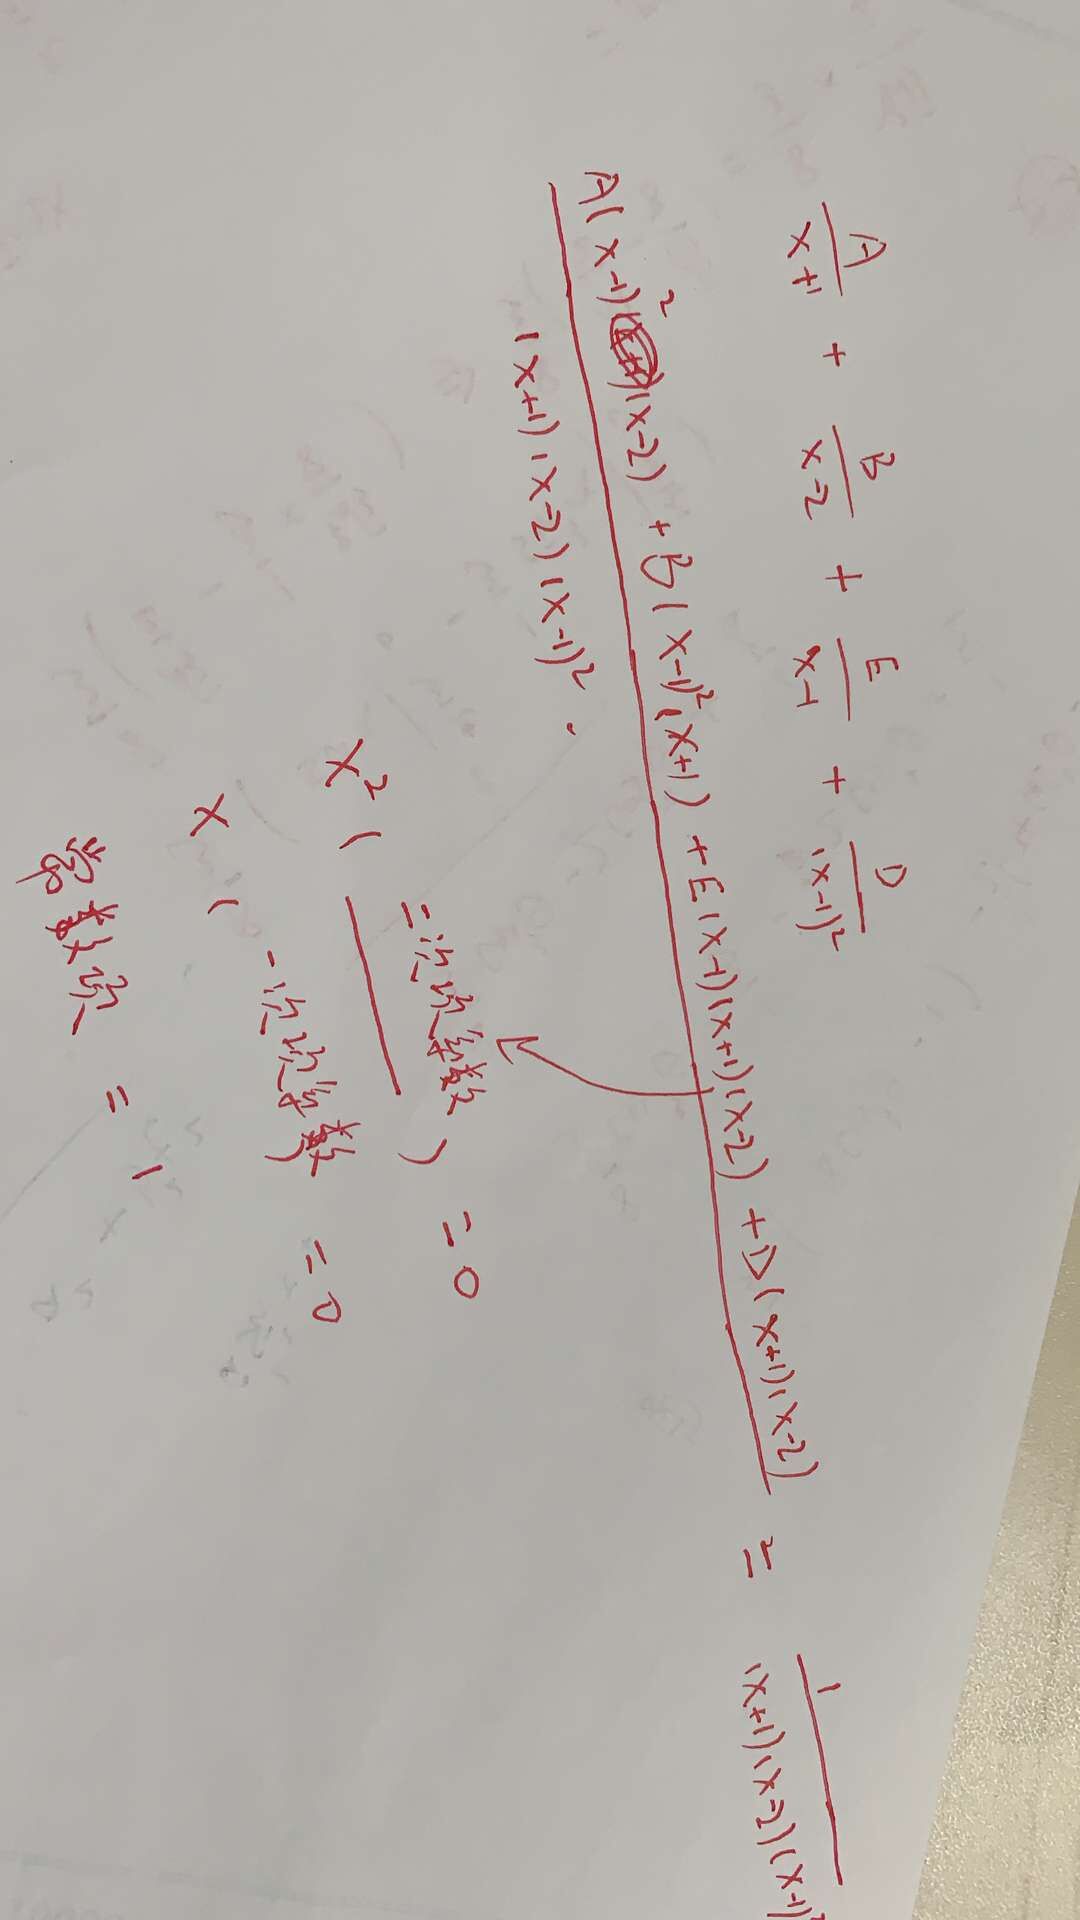 A/(x+1) + B/(x-2) + E/(x-1) + D/(x-1)²
A(x-1)²(x-2) + B(x-1)²(x+1) + E(x-1)(x+1)(x-2) + D(x+1)(x-2) = 1
(x+1)(x-2)(x-1)² (x+1)(x-2)(x-1)²
x²( 二次项系数 ) = 0
x( 一次项系数) = 0
常数项 = 1